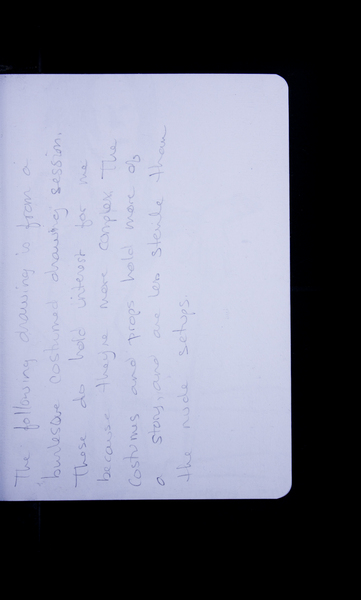 The following drawing is from a
burlesque costumed drawing session.
These do hold interest for me
because they're more complex. The
costumes and props hold more of
a story, and are less sterile than
the nude setups.